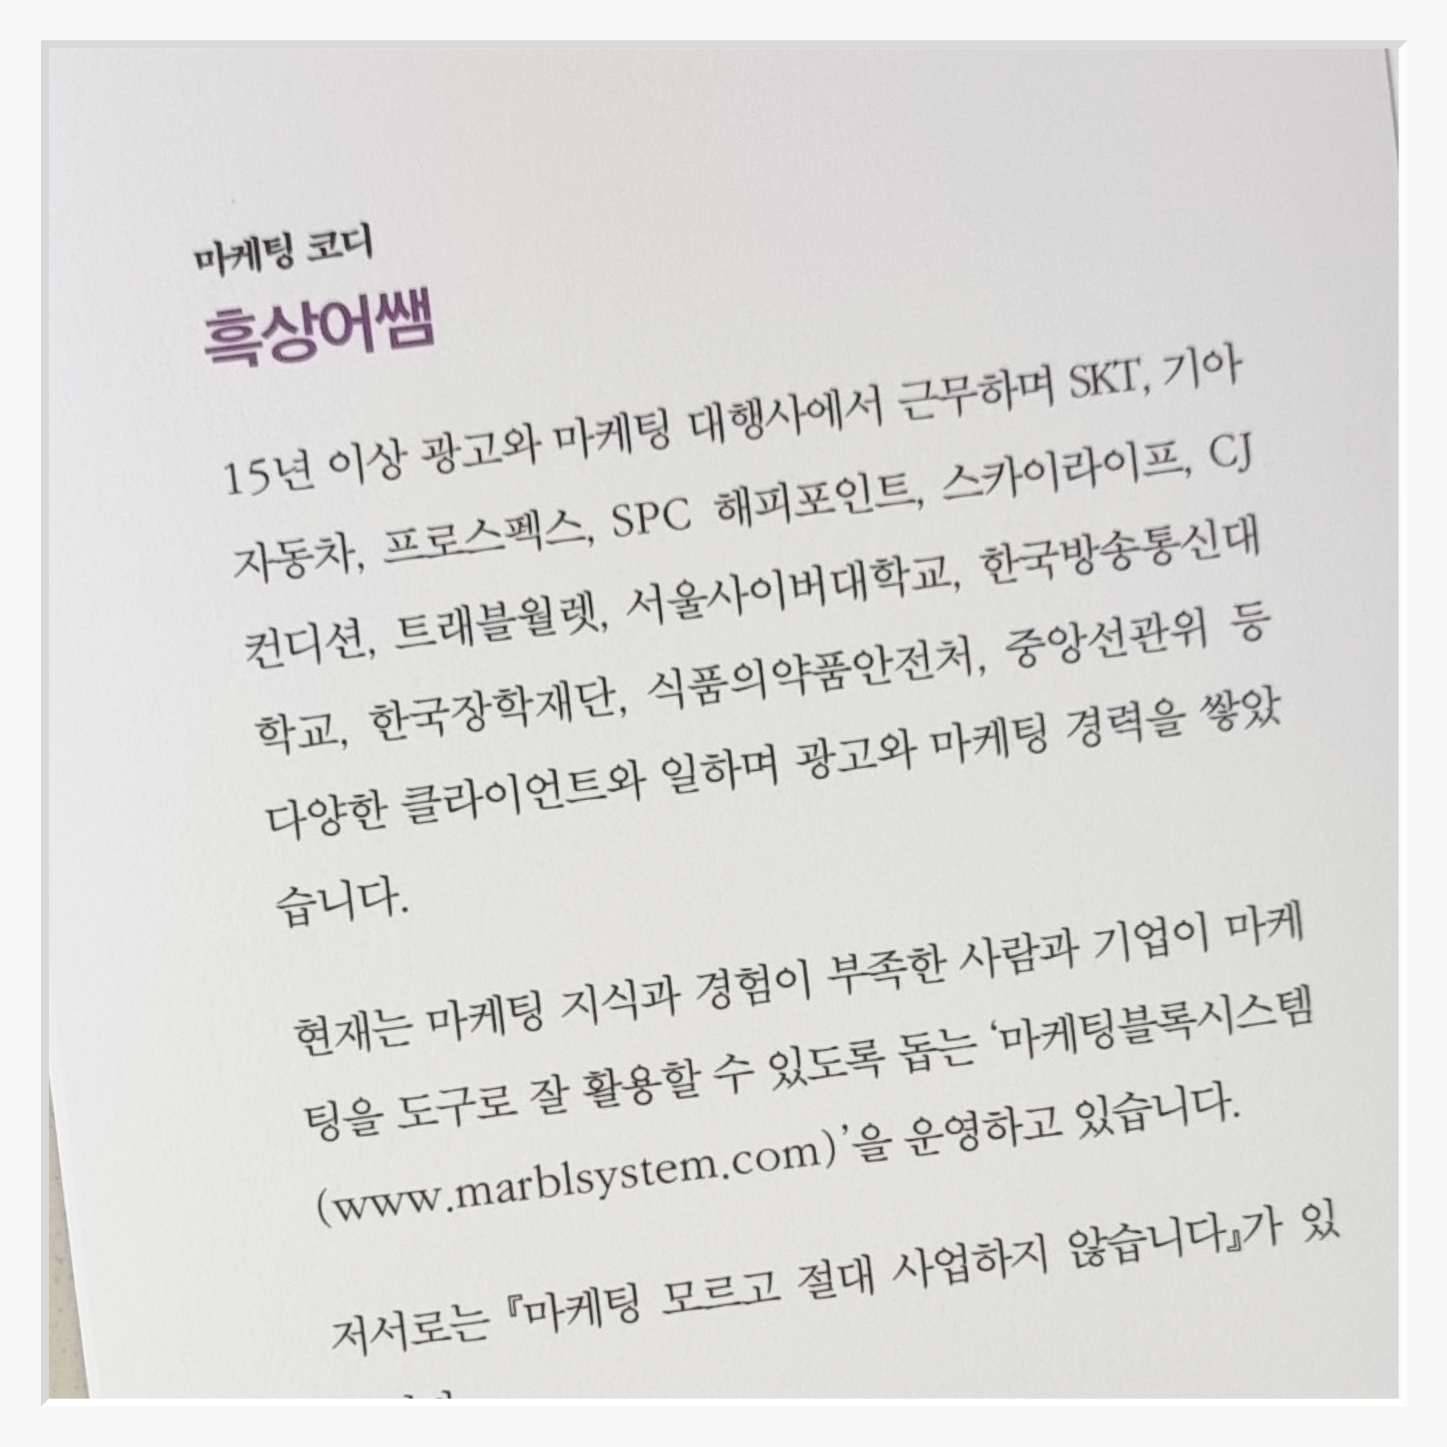 마케팅 코디
흑상어쌤
15년 이상 광고와 마케팅 대행사에서 근무하며 SKT, 기아
자동차, 프로스펙스, SPC 해피포인트, 스카이라이프, CJ
컨디션, 트래블월렛, 서울사이버대학교, 한국방송통신대
학교, 한국장학재단, 식품의약품안전처, 중앙선관위 등
다양한 클라이언트와 일하며 광고와 마케팅 경력을 쌓았
습니다.
현재는 마케팅 지식과 경험이 부족한 사람과 기업이 마케
팅을 도구로 잘 활용할 수 있도록 돕는 ‘마케팅블록시스템
(www.marblsystem.com)’을 운영하고 있습니다.
저서로는 『마케팅 모르고 절대 사업하지 않습니다』가 있